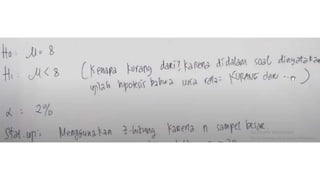 Ho : μ = 8
H1 : μ < 8 (Kenapa kurang dari? karena didalam soal dinyatakan
ujilah hipotesis bahwa usia rata: KURANG dari ...)
α = 2%
Stat.uji : Menggunakan Z-hitung karena n sampel besar